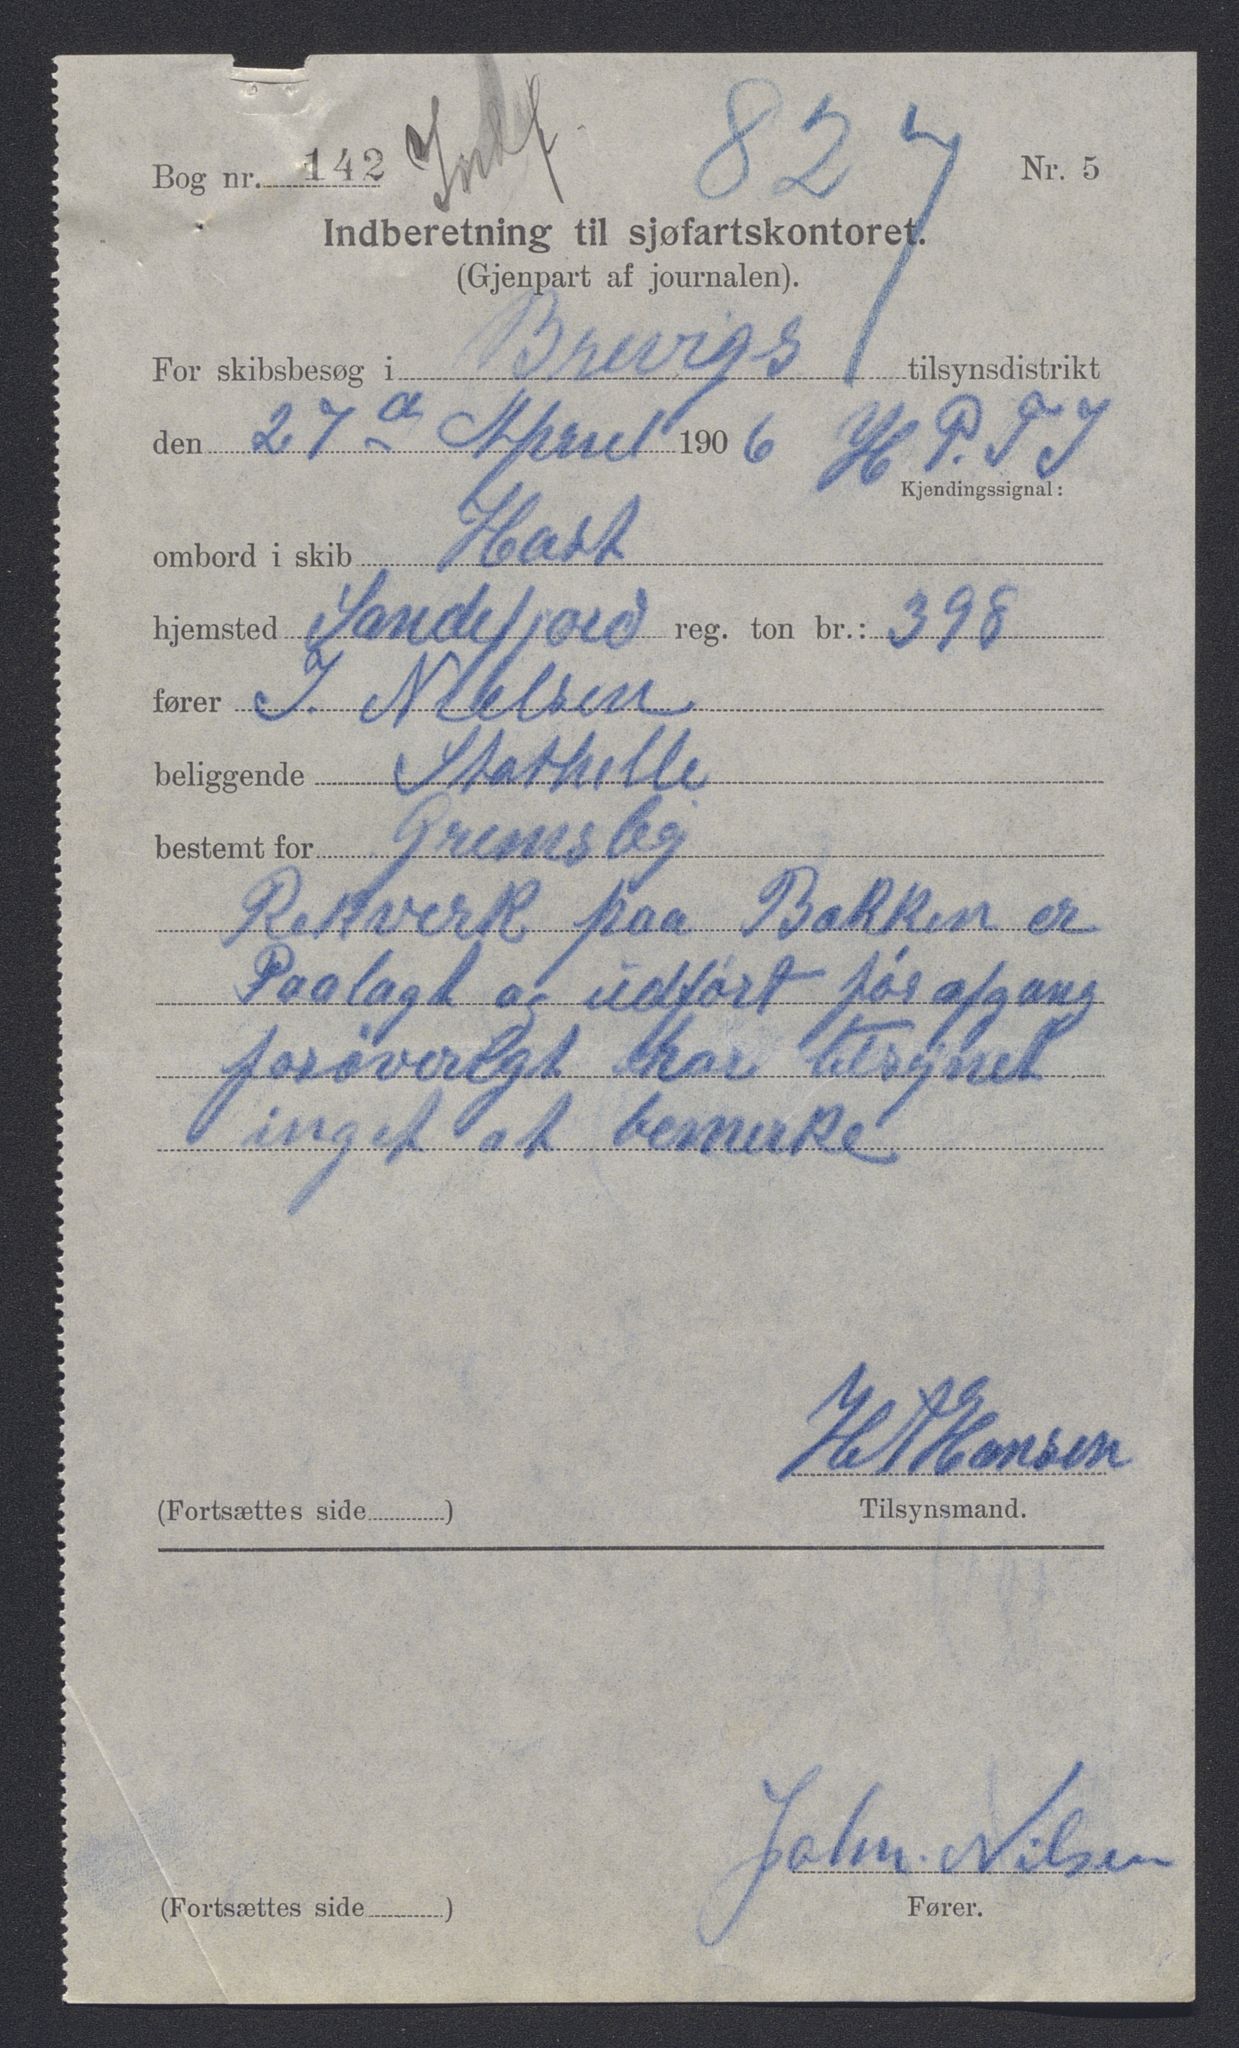 Bog nr. 142 Indf. 827 Nr. 5
Indberetning til sjøfartskontoret.
(Gjenpart af journalen).
For skibsbesøg i Brevigs tilsynsdistrikt
den 27d April 1906 H P. T J
Kjendingssignal:
ombord i skib Hast
hjemsted Sandefjord reg. ton br.: 398
fører J. Nielsen
beliggende Stathelle
bestemt for Gremsby
Rekverk paa Bakken er
Paalagt og udført før afgang
forøverlgt har tilsynet
inget at bemerke
H A Hansen
(Fortsættes side ) Tilsynsmand.
John. Nilsen
(Fortsættes side ) Fører.